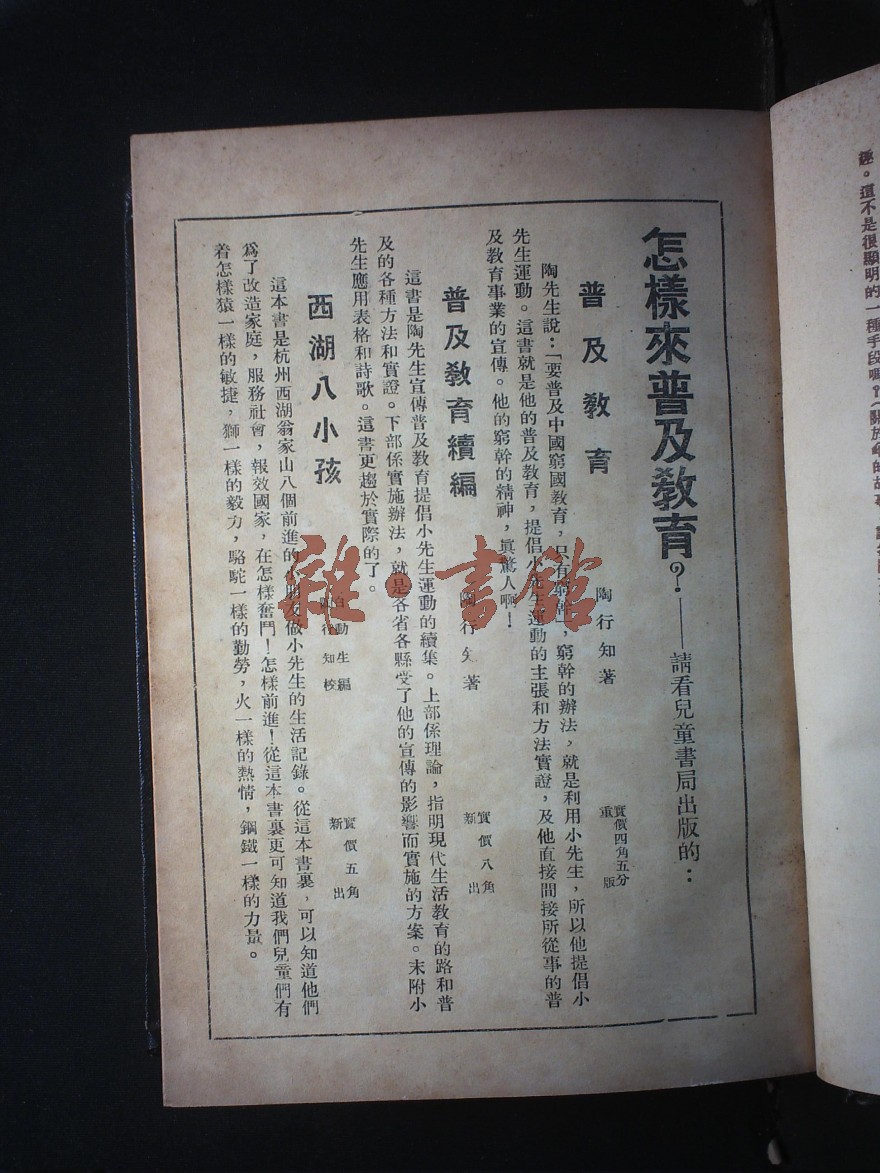 怎樣來普及敎育？——請看兒童書局出版的：
普及敎育　陶行知著　實價四角五分　重版
陶先生說：「要普及中國窮國敎育，只有窮幹」，窮幹的辦法，就是利用小先生，所以他提倡小
先生運動。這書就是他的普及敎育，提倡小先生運動的主張和方法實證，及他直接間接所從事的普
及敎育事業的宣傳。他的窮幹的精神，眞驚人啊！
普及敎育續編　陶行知著　實價八角　新出
這書是陶先生宣傳普及敎育提倡小先生運動的續集。上部係理論，指明現代生活敎育的路和普
及的各種方法和實證。下部係實施辦法，就是各省各縣受了他的宣傳的影響而實施的方案。末附小
先生應用表格和詩歌。這書更趨於實際的了。
西湖八小孩　白動生編　行知校　實價五角　新出
這本書是杭州西湖翁家山八個前進的小朋友做小先生的生活記錄。從這本書裏，可以知道他們
爲了改造家庭，服務社會，報效國家，在怎樣奮鬥！怎樣前進！從這本書裏更可知道我們兒童們有
着怎樣猿一樣的敏捷，獅一樣的毅力，駱駝一樣的勤勞，火一樣的熱情，鋼鐵一樣的力量。
雜·書館
趣。這不是很顯明的一種手段嗎？（關於